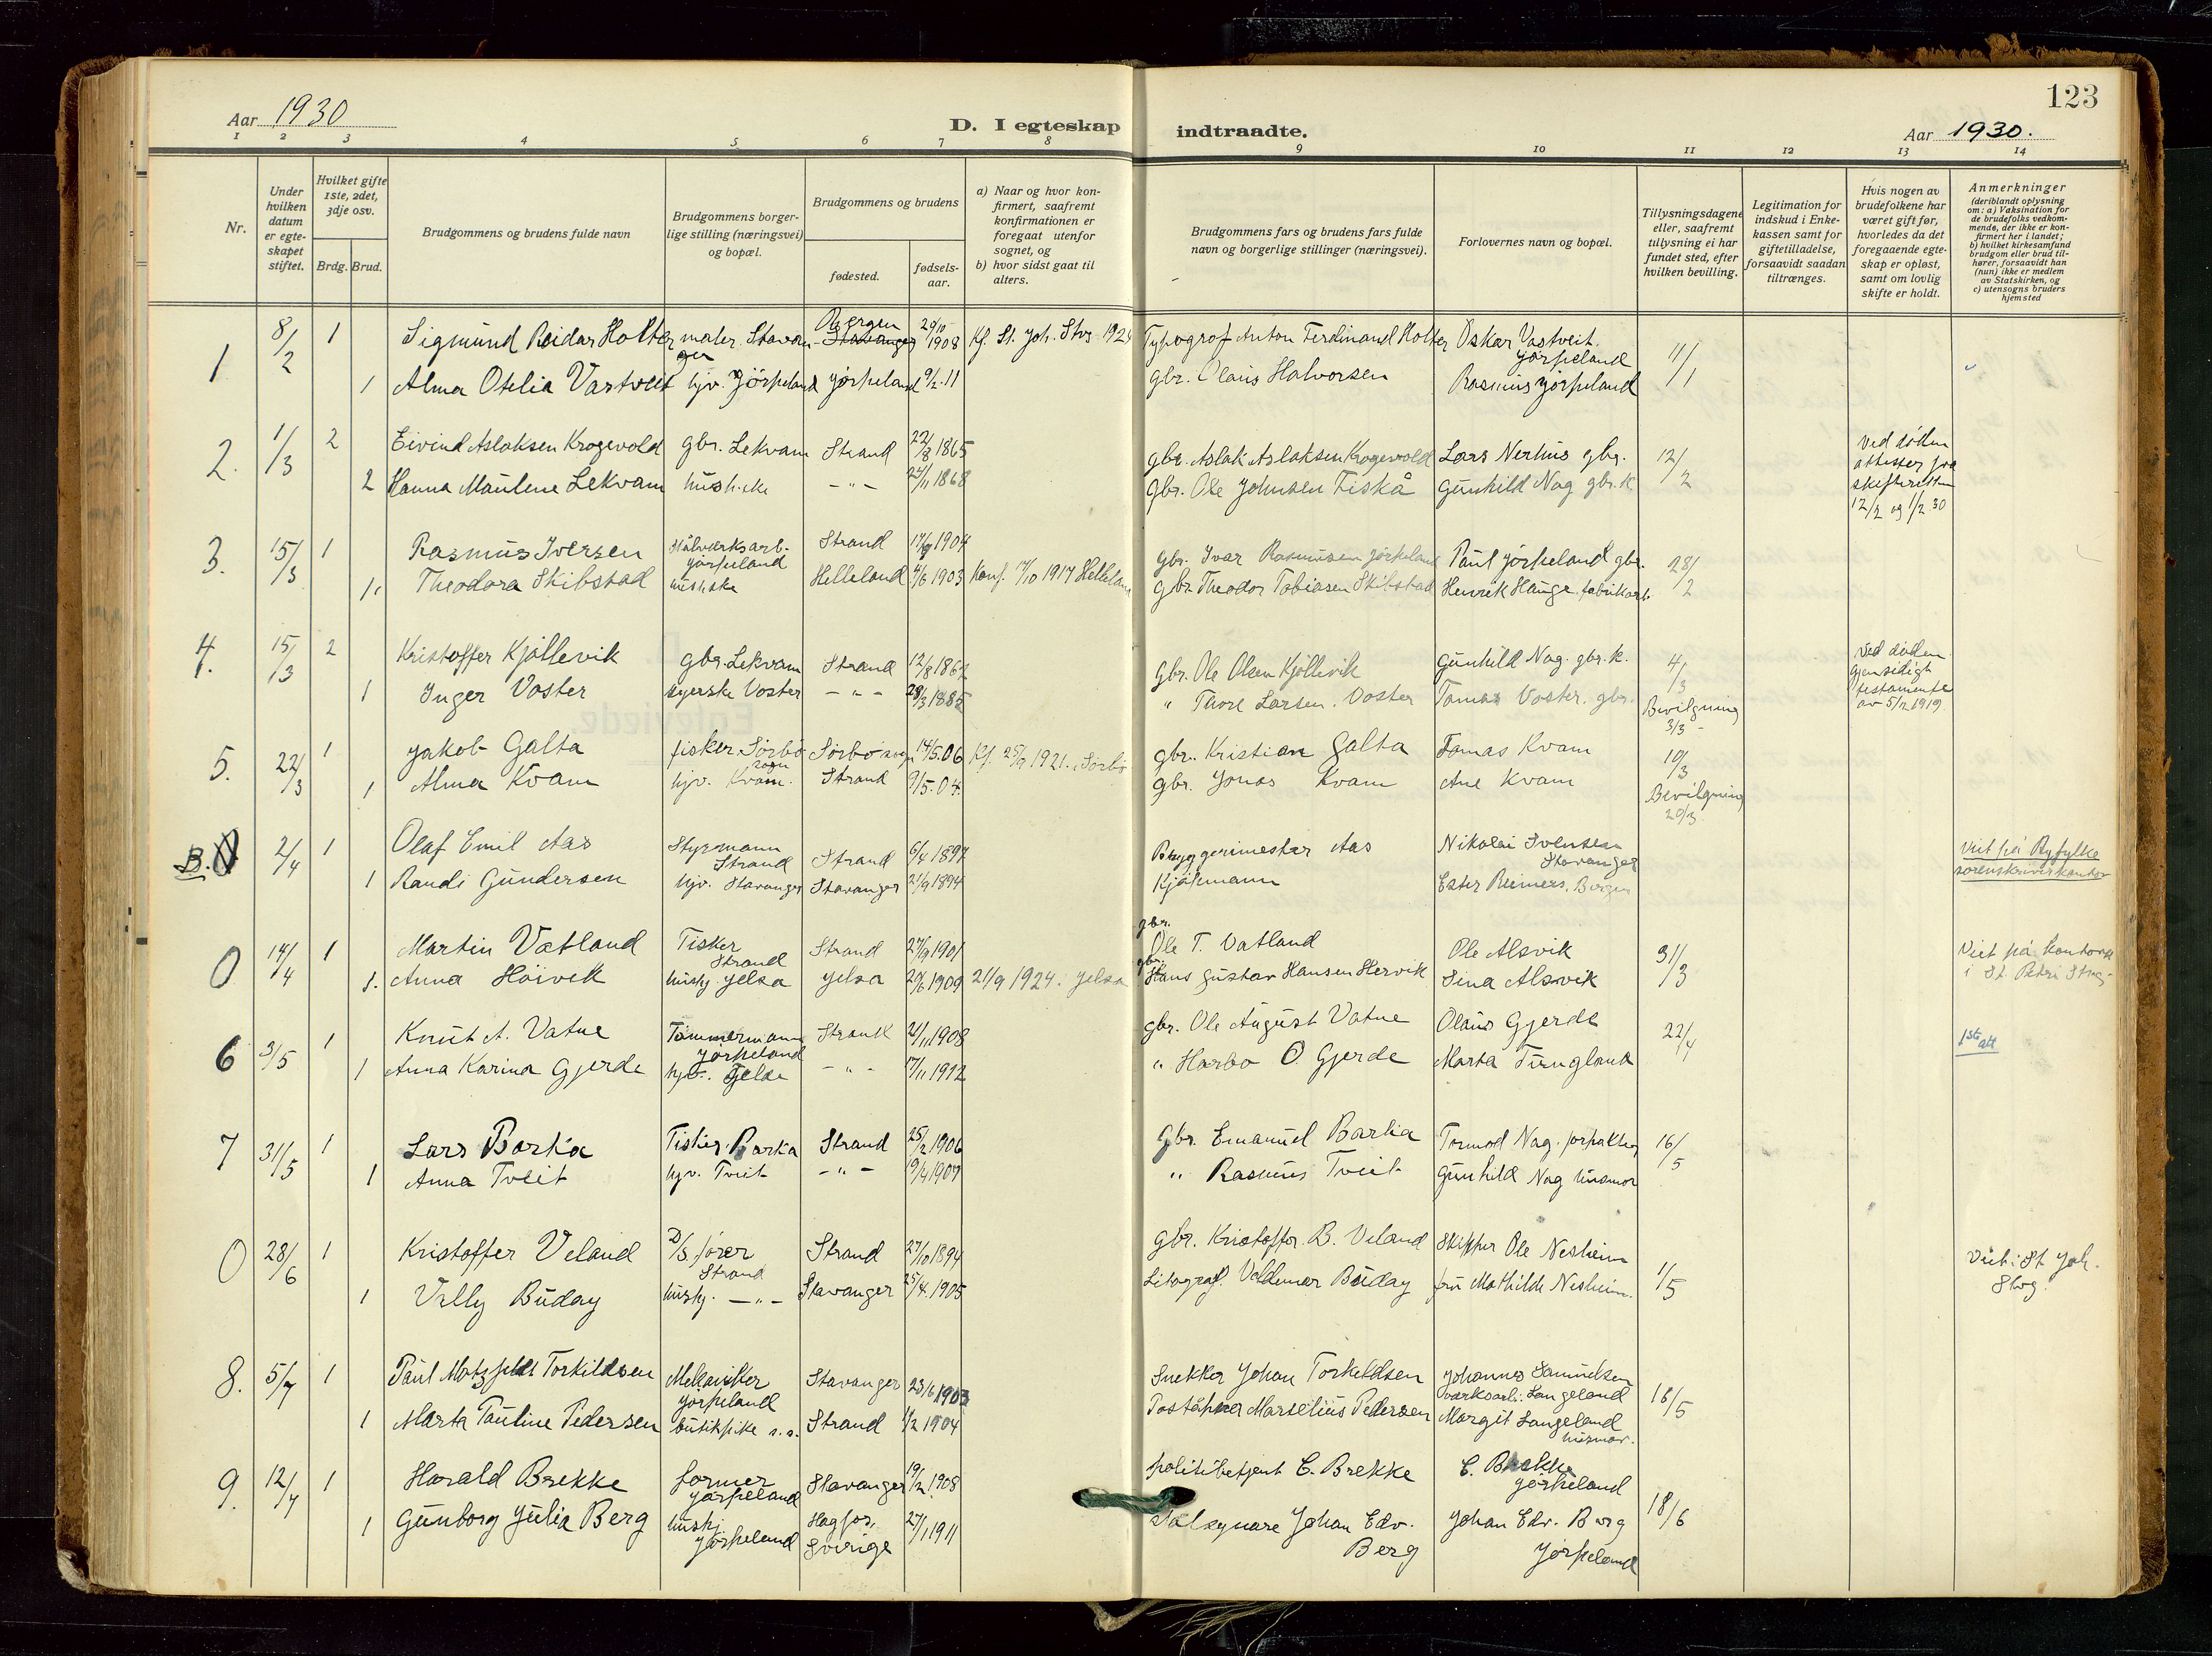 123
Aar 1930
D. I egteskap indtraadte.
Aar 1930.
1 2 3 4 5 6 7 8 9 10 11 12 13 14
Nr.
Under hvilken datum er egteskapet stiftet.
Hvilket gifte 1ste, 2det, 3dje osv.
Brdg. Brud.
Brudgommens og brudens fulde navn
Brudgommens borgerlige stilling (næringsvei) og bopæl.
Brudgommens og brudens
fødested.
fødselsaar.
a) Naar og hvor konfirmert, saafremt konfirmationen er foregaat utenfor sognet, og
b) hvor sidst gaat til alters.
Brudgommens fars og brudens fars fulde navn og borgerlige stillinger (næringsvei).
Forlovernes navn og bopæl.
Tillysningsdagene eller, saafremt tillysning ei har fundet sted, efter hvilken bevilling.
Legitimation for indskud i Enkekassen samt for giftetilladelse, forsaavidt saadan tiltrænges.
Hvis nogen av brudefolkene har været gift før, hvorledes da det foregaaende egteskap er opløst, samt om lovlig skifte er holdt.
Anmerkninger
(deriblandt oplysning om: a) Vaksination for de brudefolks vedkommende, der ikke er konfirmert her i landet; b) hvilket kirkesamfund brudgom eller brud tilhører, forsaavidt han (hun) ikke er medlem av Statskirken, og c) utensogns bruders hjemsted
1 8/2 1 Sigmund Reidar Holter maler Stavanger Bergen Stavanger 29/10 1908 Kf. St. Joh. Stvg 1924 Typograf Anton Ferdinand Holter Oskar Vastveit Jørpeland 11/1
1 Alma Otelia Vastveit hjv. Jörpeland Jörpeland 9/2 11 gbr. Olaus Halvorsen Rasmus Jörpeland
2. 1/3 2 Eivind Aslaksen Krogevold gbr. Lekvam Strand 22/8 1865 gbr. Aslak Aslaksen Krogevold Lars Nerhus gbr. 12/2 Ved döden attester fra skifteretten 12/2 og 1/2 30
2 Hanna Maulene Lekvam - " - 24/11 1868 gbr. Ole Johnsen Fiskå Gunhild Nag gbr.k.
3. 15/3 1 Rasmus Iversen Stålverksarb. Jörpeland Strand 1904 gbr. Ivar Rasmussen Jörpeland Paul Jörpeland gbr. 28/2
1. Theodora Skibstad Helleland 1903 Konf. 7/10 1917 Helleland gbr. Theodor Tobiasen Skibstad Henrik Hauge fabrikarb.
4. 15/3 2 Kristoffer Kjöllevik gbr. Lekvam Strand 12/8 gbr. Ole Olsen Kjöllevik Gunhild Nag. gbr.k. 4/3 Ved döden Gjensidigt testamente av 5/12 1919.
1 Inger Voster syerske Voster - " - 28/3 1885 " Thore Larsen Voster Tomas Voster. gbr. Bevilgning 3/3 -
5. 22/3 1 Jakob Galta fisker Sörbö sogn Sörbö sogn 14/5.06 Kf. 25/9 1921. Sörbö gbr. Kristian Galta Tomas Kvam 10/3
1 Alma Kvam hjv. Kvam. Strand 9/5.04. gbr. Jonas Kvam Ane Kvam Bevilgning 20/3
B. 0 2/4 1 Olaf Emil Aas Styrmann Strand Strand 6/4 1897 Byggerimester Aas Nikolai Svensen Stavanger Viet på Ryfylke sorenskriverkontor
1 Randi Gundersen hjv. Stavanger Stavanger 21/9 1894 Kjöpmann Ester Reimers, Bergen
0 14/4 1 Martin Vatland Fisker Strand Strand 27/9 1901 gbr. Ole T. Vatland Ole Alsvik 31/3 Viet på kontoret i St. Petri Stvg.
1. Anna Höivik hushj. Jelsa Jelsa 1909 21/9 1924. Jelsa gbr. Hans Gustav Hansen Hervik Sina Alsvik
6 3/5 1 Knut A. Vatne Tömmermann Jörpeland Strand 1908 gbr. Ole August Vatne Olaus Gjerde 22/4 1ste alt
1 Anna Karina Gjerde - " - 17/11 1912 " Harbo O. Gjerde Marta Tungland
7 31/5 1 Lars Barka Fisker Barka Strand 25/2 1906 gbr. Emanuel Barka Tormod Nag. forpakter 16/5
1 Anna Tveit hjv. Tveit - " - 1907 " Rasmus Tveit Gunhild Nag husmor
0 28/6 1 Kristoffer Veland D/S förer Strand Strand 27/10 1894 gbr. Kristoffer B. Veland Skipper Ole Nesheim 1/5 Viet i St. Joh. Stvg.
1 Villy Buday hushj. - " - Stavanger 25/4.1905 Litograf. Valdemar Buday fru Mathilde Nesheim.
8. 5/7 1 Paul Motzfeldt Torkildsen Mekaniker Jörpeland Stavanger 23/6 1903 Snekker Johan Torkeldsen Johannes Samuelsen verksarb. Langeland 18/5
1 Marta Pauline Pedersen butikpike s.s. Strand 1904 Poståpner Marselius Pedersen Margit Langeland husmor.
9. 12/7 1 Harald Brekke former Jörpeland Stavanger 19/2 1908 politibetjent C. Brekke C. Brekke Jörpeland 18/6
1 Gunborg Julia Berg hushj. Jörpeland Hagfors, Sverige 27/1 1911 Johan Edv. Berg Johan Edv. Berg Jörpeland